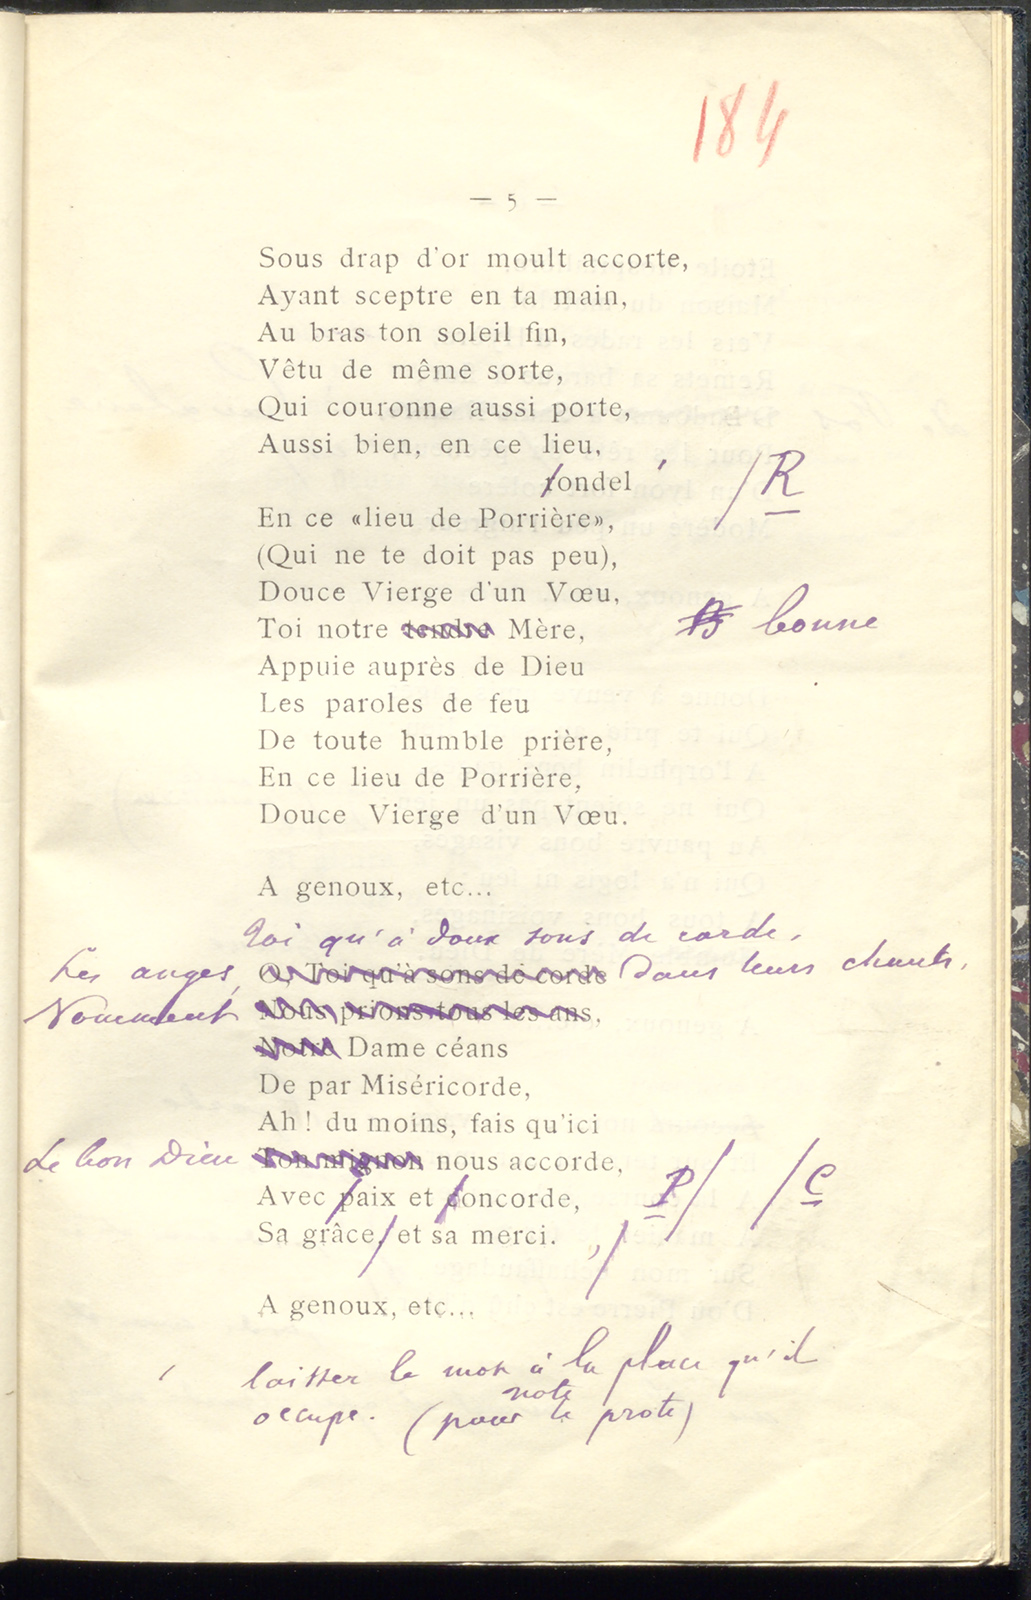 184
— 5 —
Sous drap d'or moult accorte,
Ayant sceptre en ta main,
Au bras ton soleil fin,
Vêtu de même sorte,
Qui couronne aussi porte,
Aussi bien, en ce lieu,
rondel ' /R
En ce «lieu de Porrière»,
(Qui ne te doit pas peu),
Douce Vierge d'un Vœu,
Toi notre tendre Mère, bonne
Appuie auprès de Dieu
Les paroles de feu
De toute humble prière,
En ce lieu de Porrière,
Douce Vierge d'un Vœu.
A genoux, etc...
Toi qu'à doux sons de corde,
Les anges, O, Toi qu'à sons de corde Dans leurs chants,
Nomment Nous prions tous les ans,
Notre Dame céans
De par Miséricorde,
Ah ! du moins, fais qu'ici
Le bon Dieu Ton mignon nous accorde,
Avec paix et concorde, P/ /C
Sa grâce, et sa merci. ,/
A genoux, etc...
' laisser le mot à la place qu'il
occupe. (note pour le prote)